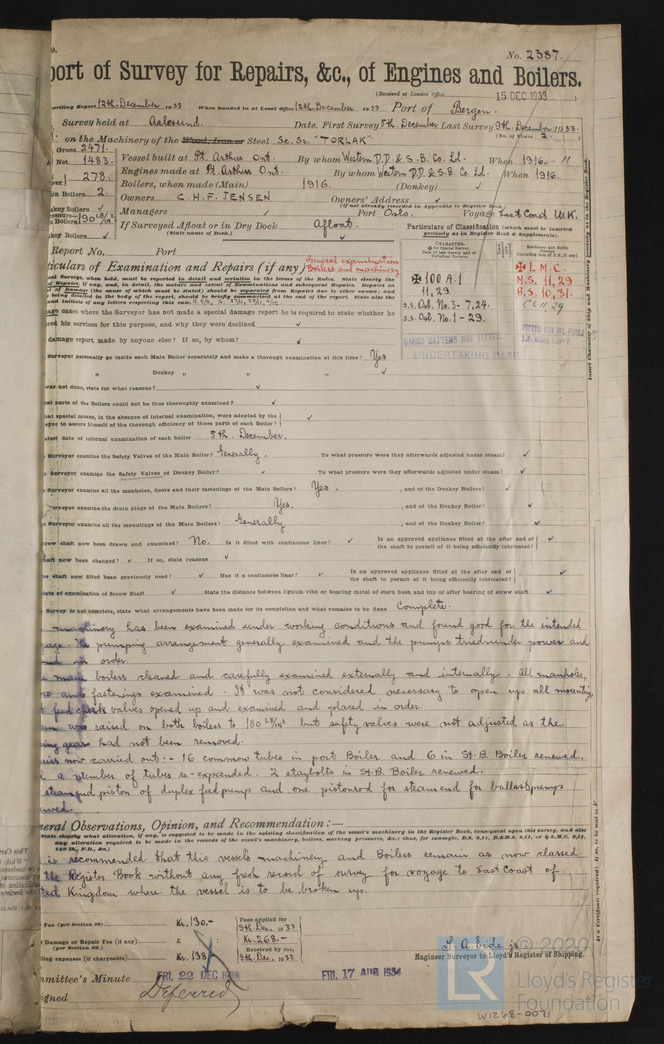 No. 2387.
port of Survey for Repairs, &c., of Engines and Boilers.
(Received at London Office 15 DEC 1933
writing Report 12th December 1933 When handed in at Local Office 12th December 1933 Port of Bergen.
Survey held at Aalesund. Date. First Survey 5th December Last Survey 9th December 1933.
(No. of Visits 2.
on the Machinery of the Wood, Iron or Steel Sc. Sr "TORLAK"
Gross 2471.
Net 1483.
Vessel built at Pt. Arthur Ont. By whom Western D.D. & S.B. Co. Ld. When 1916-11
Engines made at Pt Arthur Ont. By whom Western D.D. & S.B. Co. Ld. When 1916.
278.
Boilers, when made (Main) 1916. (Donkey) ✓
n Boilers 2
Owners C.H.F. JENSEN Owners' Address ✓
(If not already recorded in Appendix to Register Book.)
nkey Boilers ✓
Managers ✓ Port Oslo. Voyage East Coast U.K.
Boilers 190 LB/IN
If Surveyed Afloat or in Dry Dock Afloat.
(State name of Dock.)
key Boilers ✓
Particulars of Classification (which must be inserted
precisely as in Register Book & Supplements).
Report No. Port
ticulars of Examination and Repairs (if any) General examination
Boilers and machinery
CHARACTER.
✠ 100 A.1
11,29.
S.S. Osl. No. 3-7.24.
S.S. Osl. No. 1-29.
✠ L.M.C.
M.S. 11,29.
B.S. 10,31.
CL 11.29
CARGO BATTENS NOT FITTED.
UNDERTAKING CASE
FITTED FOR OIL FUEL
age cases where the Surveyor has not made a special damage report he is required to state whether he
ered his services for this purpose, and why they were declined ✓
damage report made by anyone else? If so, by whom? ✓
Surveyor personally go inside each Main Boiler separately and make a thorough examination at this time? Yes
" Donkey " " " ✓
was not done, state for what reasons? ✓
at parts of the Boilers could not be thus thoroughly examined? ✓
at special means, in the absence of internal examination, were adopted by the
veyor to assure himself of the thorough efficiency of those parts of each Boiler? ✓
atest date of internal examination of each boiler 5th. December.
Surveyor examine the Safety Valves of the Main Boiler? Generally. To what pressure were they afterwards adjusted under steam? ✓
Surveyor examine the Safety Valves of Donkey Boiler? ✓ To what pressure were they afterwards adjusted under steam? ✓
Surveyor examine all the manholes, doors and their fastenings of the Main Boilers? Yes. , and of the Donkey Boilers? ✓
Surveyor examine the drain plugs of the Main Boilers? Yes. , and of the Donkey Boiler? ✓
Surveyor examine all the mountings of the Main Boilers? Generally , and of the Donkey Boiler? ✓
rew shaft now been drawn and examined? No. Is it fitted with continuous liner? ✓ Is an approved appliance fitted at the after end of
the shaft to permit of it being efficiently lubricated? ✓
haft now been changed? ✓ If so, state reasons ✓
he shaft now fitted been previously used? ✓ Has it a continuous liner? ✓ Is an approved appliance fitted at the after end of
the shaft to permit of it being efficiently lubricated? ✓
date of examination of Screw Shaft ✓ State the distance between lignum vitæ or bearing metal of stern bush and top of after bearing of screw shaft ✓
Survey is not complete, state what arrangements have been made for its completion and what remains to be done Complete.
machinery has been examined under working conditions and found good for the intended
age. The pumping arrangement generally examined and the pumps tried under power and
in order.
main boilers cleaned and carefully examined externally and internally. All manholes,
and fastenings examined. It was not considered necessary to open up all mountings,
feed check valves opened up and examined and placed in order.
was raised on both boilers to 180 LB/IN² but safety valves were not adjusted as the
ing gear had not been removed.
airs now carried out:- 16 common tubes in port Boiler and 6 in St.B. Boiler renewed.
a number of tubes re-expanded. 2 staybolts in St.B. Boiler renewed.
steam end piston of duplex feed pump and one piston rod for steam end for ballast pump
ewed.
eral Observations, Opinion, and Recommendation:—
is recommended that this vessel's machinery and Boilers remain as now classed
the Register Book without any fresh record of survey for voyage to East Coast of
ted Kingdom where the vessel is to be broken up.
Fee (per Section 29) Kr. 130.-
Fees applied for
9th Dec. 1933
Damage or Repair Fee (if any) £
(per Section 29.)
Kr. 268.-
Received by me,
elling expenses (if chargeable) Kr. 138
9th Dec. 1933
Engineer Surveyor to Lloyd's Register of Shipping.
mmittee's Minute FRI. 22 DEC 1933 FRI. 17 AUG 1934
signed Deferred
© 2020
LR
Lloyd's Register
Foundation
W1268-0071